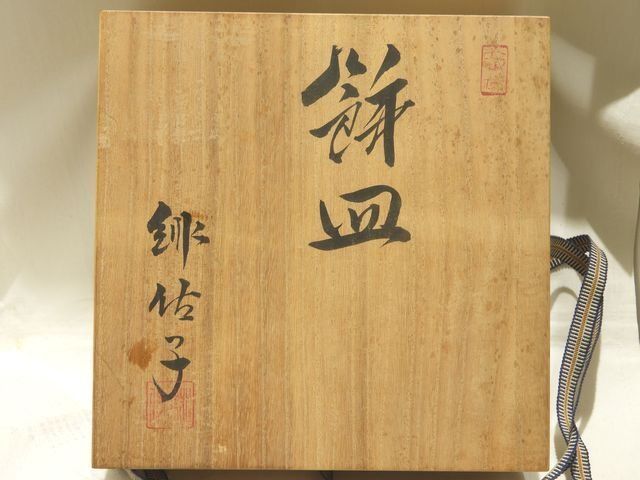 餅皿
緋佐子